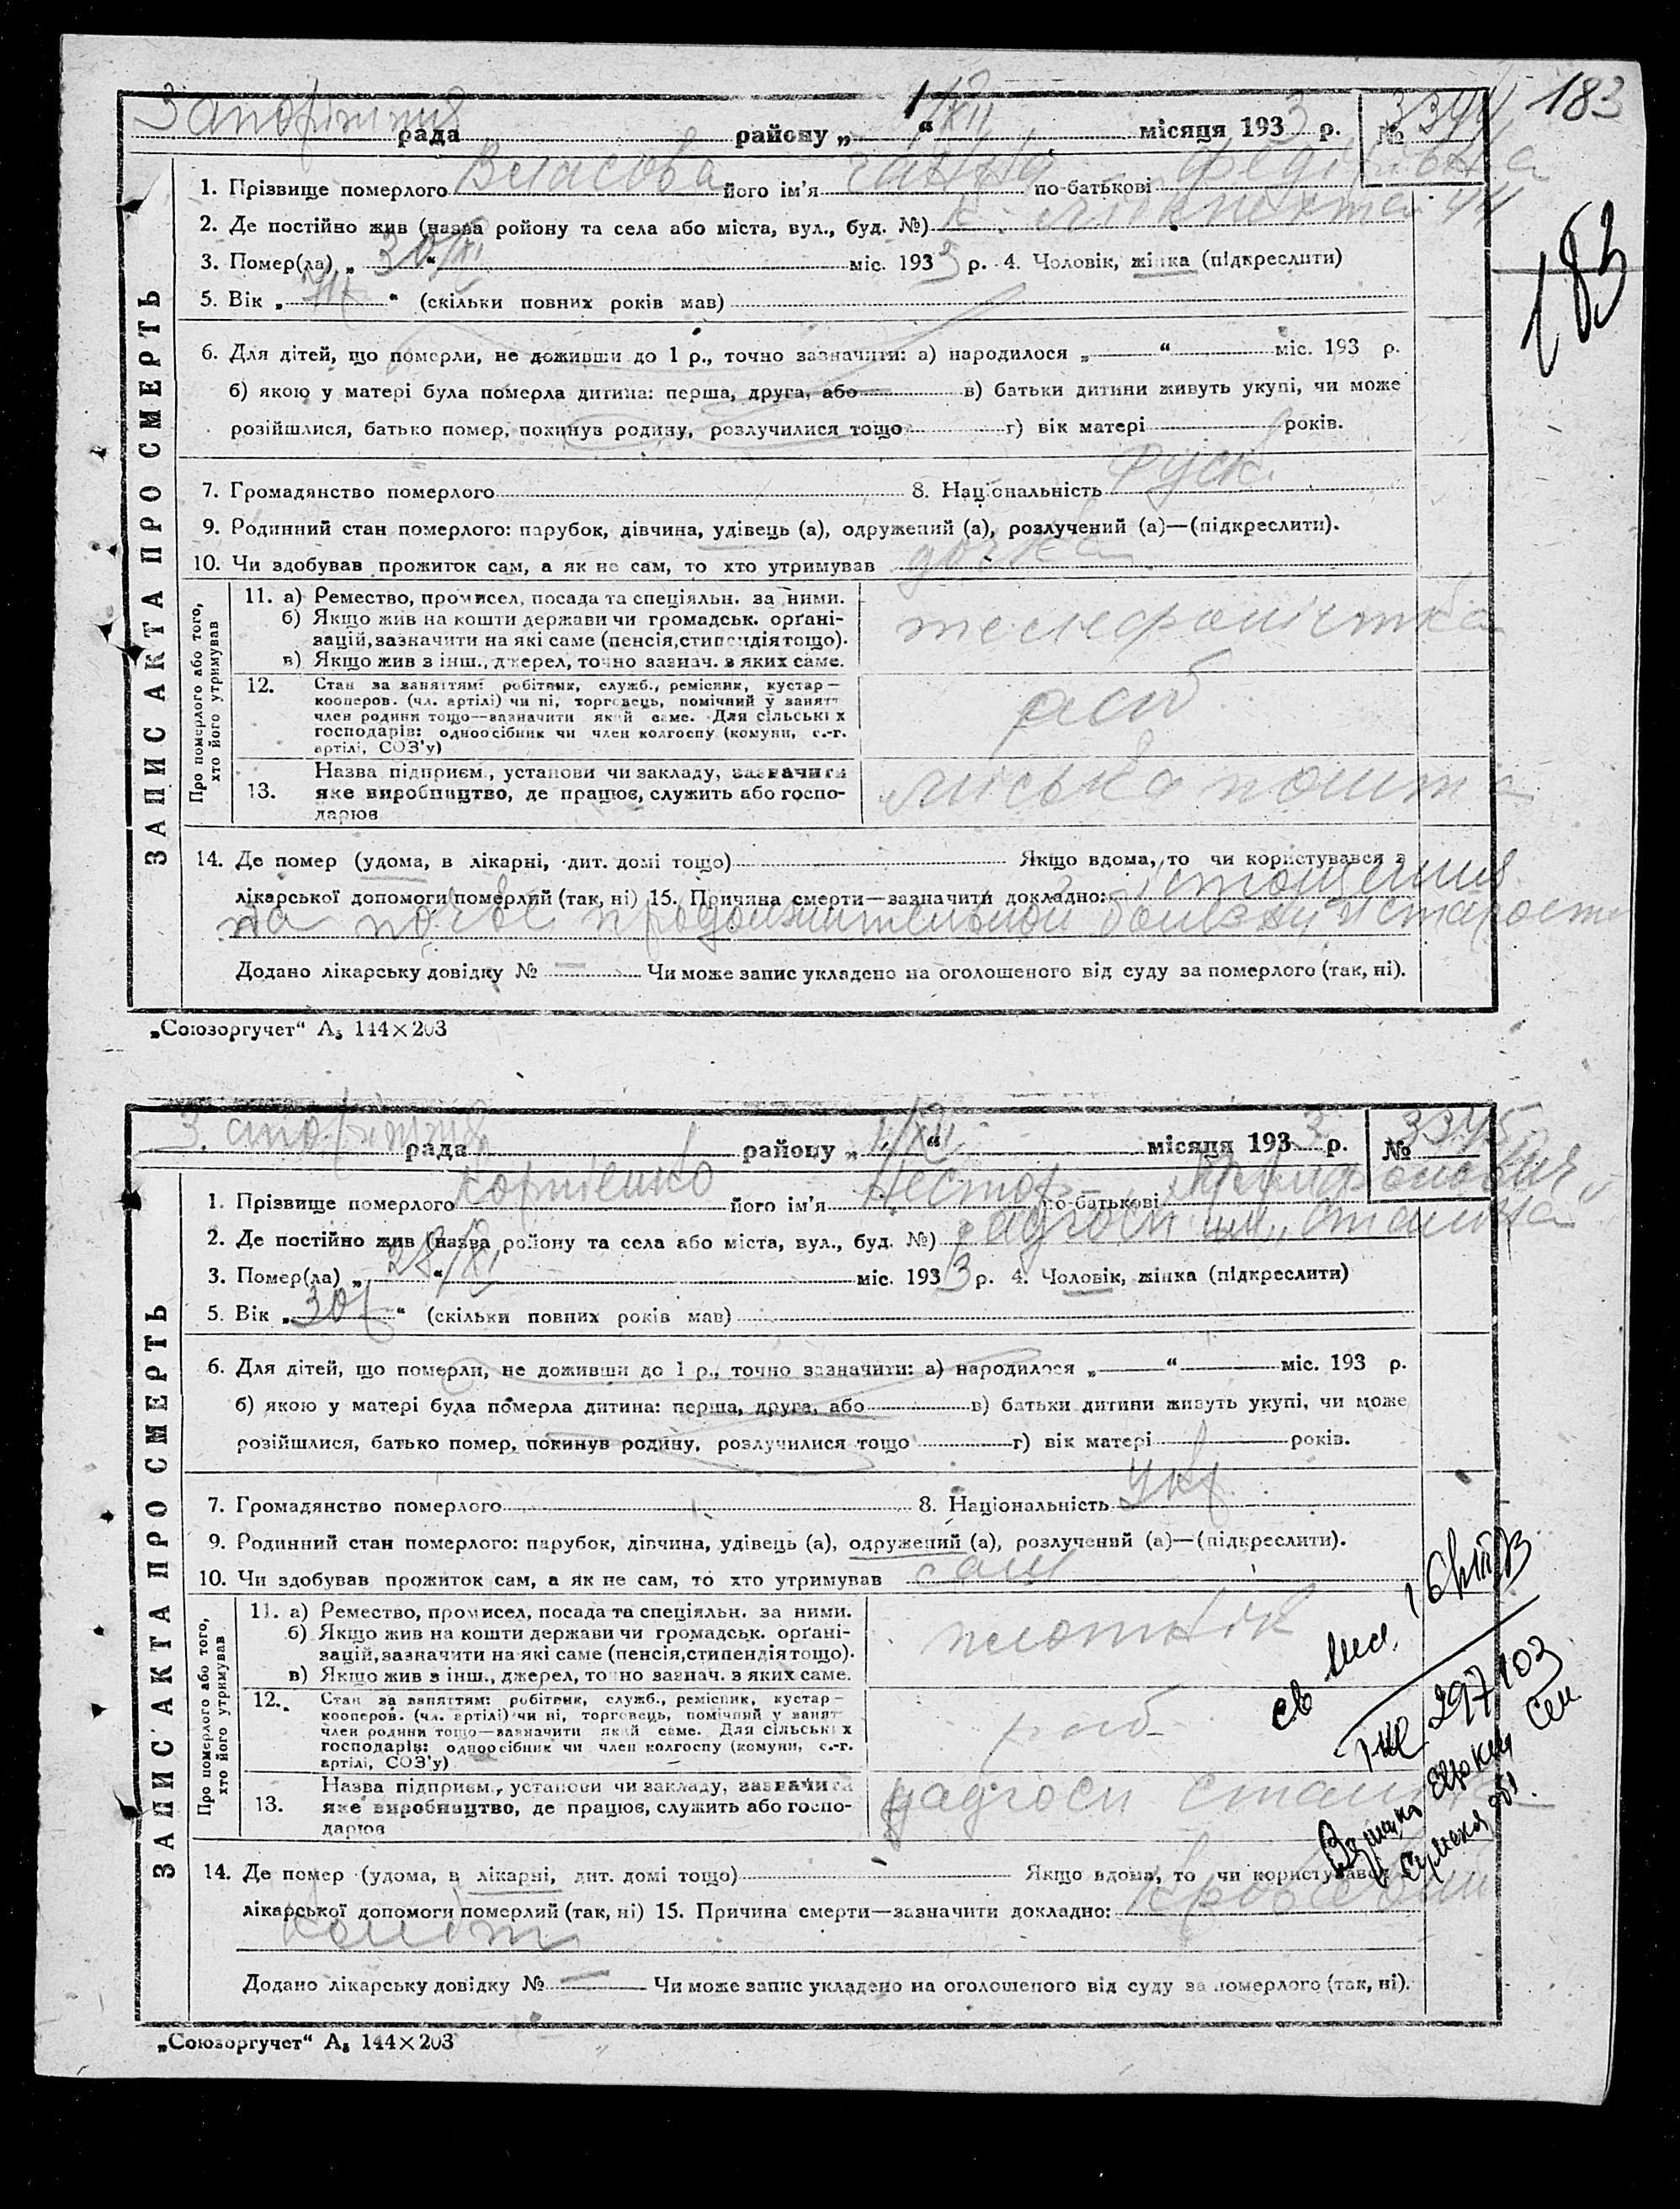 183
Запоріжжя рада района „1/XII“ місяця 1933 р. № 3344
183
1. Прізвище померлого Власова його ім’я Ганна по-батькові Федорівна
2. Де постійно жив (назва ройону та села або міста, вул., буд. №) К. Лібкнехта 44
3. Помер(ла) „30/XI“ міс. 1933 р. 4. Чоловік, жінка (підкреслити)
5. Вік „ “ (скільки повних років мав)
6. Для дітей, що померли, не доживши до 1 р., точно зазначити: а) народилося „ “ міс. 193 р.
б) якою у матері була померла дитина: перша, друга, або в) батьки дитини живуть укупі, чи може
розійшлися, батько помер, покинув родину, розлучилися тощо г) вік матері років.
7. Громадянство померлого 8. Національність руск.
9. Родинний стан померлого: парубок, дівчина, удівець (а), одружений (а), розлучений (а)—(підкреслити).
10. Чи здобував прожиток сам, а як не сам, то хто утримував дочка
ЗАПИС АКТА ПРО СМЕРТЬ
Про померлого або того, хто його утримував
11. а) Ремество, промисел, посада та спеціяльн. за ними.
б) Якщо жив на кошти держави чи громадськ. орґані-
зацій, зазначити на які саме (пенсія, стипендія тощо).
в) Якщо жив з інш., джерел, точно зазнач. з яких саме.
телефоністка
12. Стан за заняттям: робітник, служб., ремісник, кустар—
кооперов. (чл. артілі) чи ні, торговець, помічний у занятт
член родини тощо—зазначити який саме. Для сільських
господарів: одноосібник чи член колгоспу (комуни, с.-г.
артілі, СОЗ’у)
роб
13. Назва підприєм., установи чи закладу, зазначити
яке виробництво, де працює, служить або госпо-
дарює
міська пошта
14. Де помер (удома, в лікарні, дит. домі тощо) Якщо вдома, то чи користувався з
лікарської допомоги померлий (так, ні) 15. Причина смерти—зазначити докладно: істощения
на почве продолжительной болезни и старости
Додано лікарську довідку № — Чи може запис укладено на оголошеного від суду за померлого (так, ні).
„Союзоргучет“ А₅ 144×203
Запоріжжя рада району „1/XII“ місяця 1933 р. № 3345
1. Прізвище померлого Корнієнко його ім’я Нестор по-батькові
2. Де постійно жив (назва ройону та села або міста, вул., буд. №) радгосп ім. Сталіна
3. Помер(ла) „28/XI“ міс. 1933 р. 4. Чоловік, жінка (підкреслити)
5. Вік „30р“ (скільки повних років мав)
6. Для дітей, що померли, не доживши до 1 р., точно зазначити: а) народилося „ “ міс. 193 р.
б) якою у матері була померла дитина: перша, друга, або в) батьки дитини живуть укупі, чи може
розійшлися, батько помер, покинув родину, розлучилися тощо г) вік матері років.
7. Громадянство померлого 8. Національність Укр.
9. Родинний стан померлого: парубок, дівчина, удівець (а), одружений (а), розлучений (а)—(підкреслити).
10. Чи здобував прожиток сам, а як не сам, то хто утримував сам
ЗАПИС АКТА ПРО СМЕРТЬ
Про померлого або того, хто його утримував
11. а) Ремество, промисел, посада та спеціяльн. за ними.
б) Якщо жив на кошти держави чи громадськ. орґані-
зацій, зазначити на які саме (пенсія, стипендія тощо).
в) Якщо жив з інш., джерел, точно зазнач. з яких саме.
плотнік
12. Стан за заняттям: робітник, служб., ремісник, кустар—
кооперов. (чл. артілі) чи ні, торговець, помічний у занят
член родини тощо—зазначити який саме. Для сільських
господарів: одноосібник чи член колгоспу (комуни, с.-г.
артілі, СОЗ’у)
роб
13. Назва підприєм., установи чи закладу, зазначити
яке виробництво, де працює, служить або госпо-
дарює
радгосп Сталіна
14. Де помер (удома, в лікарні, дит. домі тощо) Якщо вдома, то чи користувався з
лікарської допомоги померлий (так, ні) 15. Причина смерти—зазначити докладно:
Додано лікарську довідку № — Чи може запис укладено на оголошеного від суду за померлого (так, ні).
„Союзоргучет“ А₅ 144×203